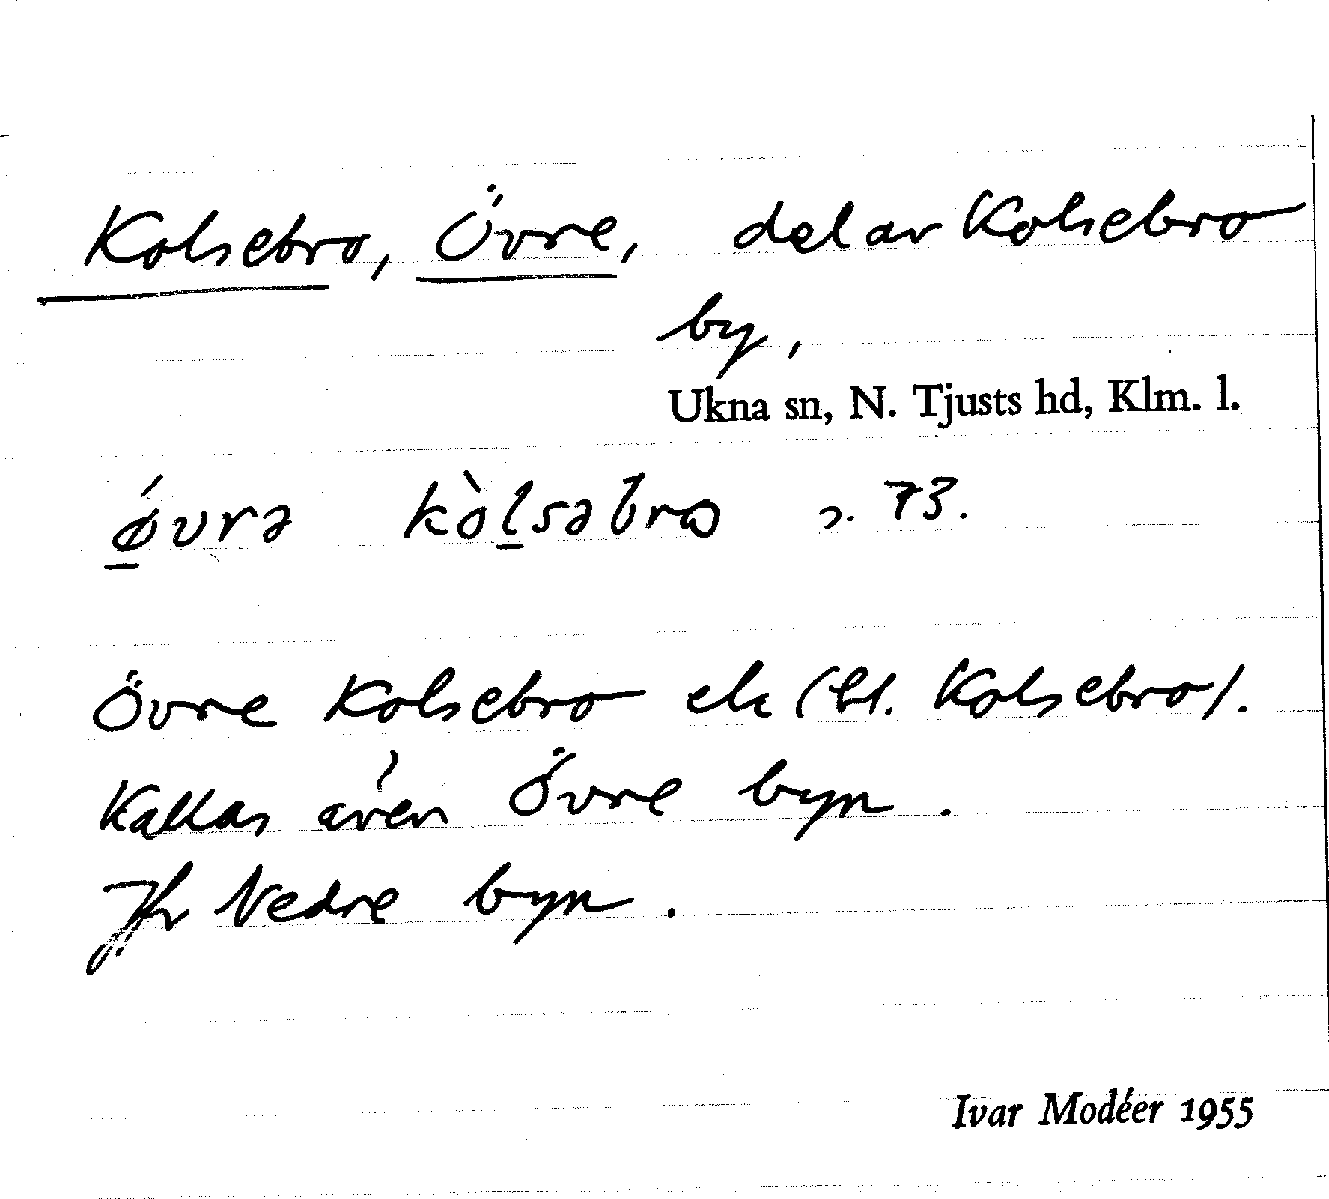 Kolsebro, Övre, del av Kolsebro
by,
Ukna sn, N. Tjusts hd, Klm. l.
ǿvrə kòlsəbro s. 73.
Övre Kolsebro ek (bl. Kolsebro).
Kallas även Övre byn.
Jfr Nedre byn.
Ivar Modéer 1955